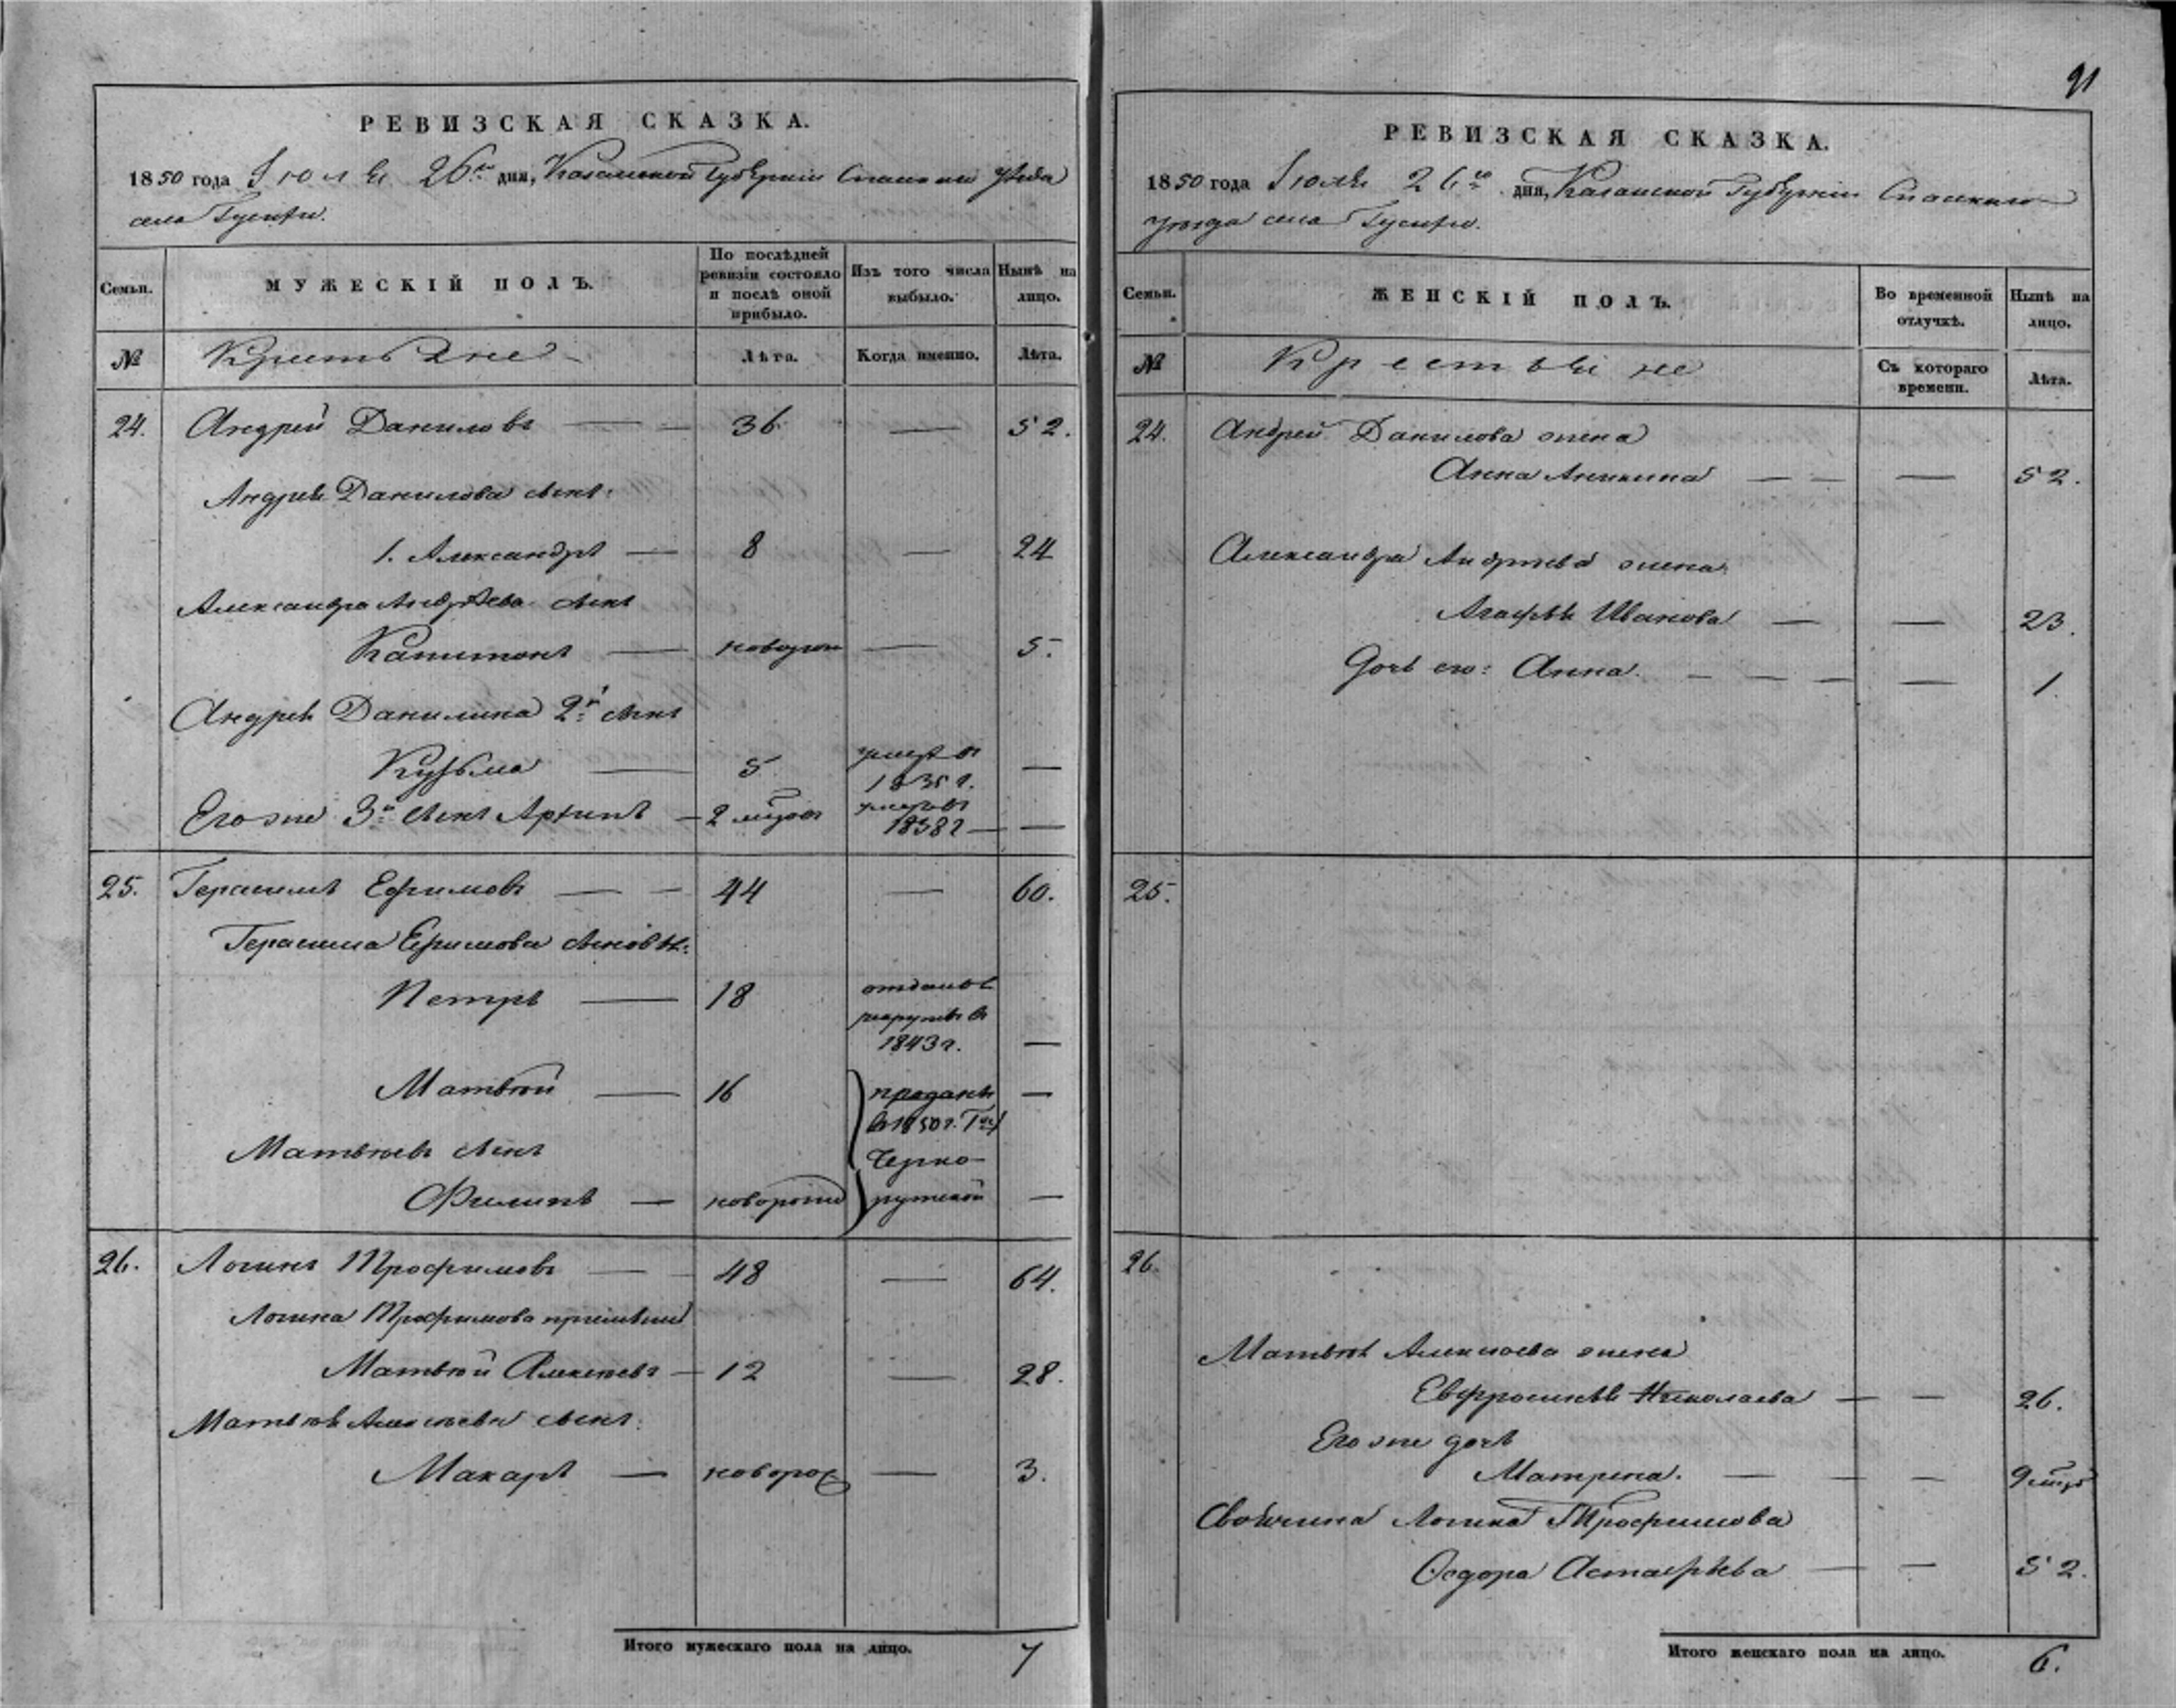 РЕВИЗСКАЯ СКАЗКА.
1850 года Іюля 26го дня, Казанской Губерніи Спаскаго уѣзда
села
Семьи.
МУЖЕСКІЙ ПОЛЪ.
По послѣдней ревизіи состояло и послѣ оной прибыло.
Изъ того числа выбыло.
Нынѣ на лицо.
№
Крестьяне
Лѣта.
Когда именно.
Лѣта.
24. Андрей Даниловъ — 36 — 52.
Андрея Данилова сынъ:
1. Александръ — 8 — 24
Александра Андрѣева сынъ
Капитонъ — новорож — 5.
Андрея Данилина 2й сынъ
Кузьма — 5 умеръ въ 1835 г. —
Его же 3й сынъ Архипъ — 2 мѣсяц умеръ въ 1838 г —
25. Герасимъ Ефимовъ — 44 — 60.
Герасима Ефимова сыновья:
Петръ — 18 отданъ въ рекруты въ 1843 г. —
Матвѣй — 16 проданъ въ 1850 г. Гже —
Матвѣевъ сынъ
Филипъ — новорож —
26. Логинъ Трофимовъ — 48 — 64.
Логина Трофимова
Матвѣй Алексѣевъ — 12 — 28.
Матвѣя Алексѣева сынъ:
Макаръ — новорож — 3.
Итого мужескаго пола на лицо. 7
91
РЕВИЗСКАЯ СКАЗКА.
1850 года Іюля 26го дня, Казанской Губерніи Спаскаго
уѣзда села
Семьи.
ЖЕНСКІЙ ПОЛЪ.
Во временной отлучкѣ.
Нынѣ на лицо.
№
Крестьяне
Съ котораго времени.
Лѣта.
24. Андрея Данилова жена
Анна Аникина — — 52.
Александра Андрѣева жена
Агафья Иванова — — 23.
Дочь его: Анна. — — 1.
25.
26.
Матвѣя Алексѣева жена
Евфросинья Николаева — — 26.
Его же дочь
Матрена. — — 9 мѣсц
Логина Трофимова
Ѳедора Астафьева — — 52.
Итого женскаго пола на лицо. 6.